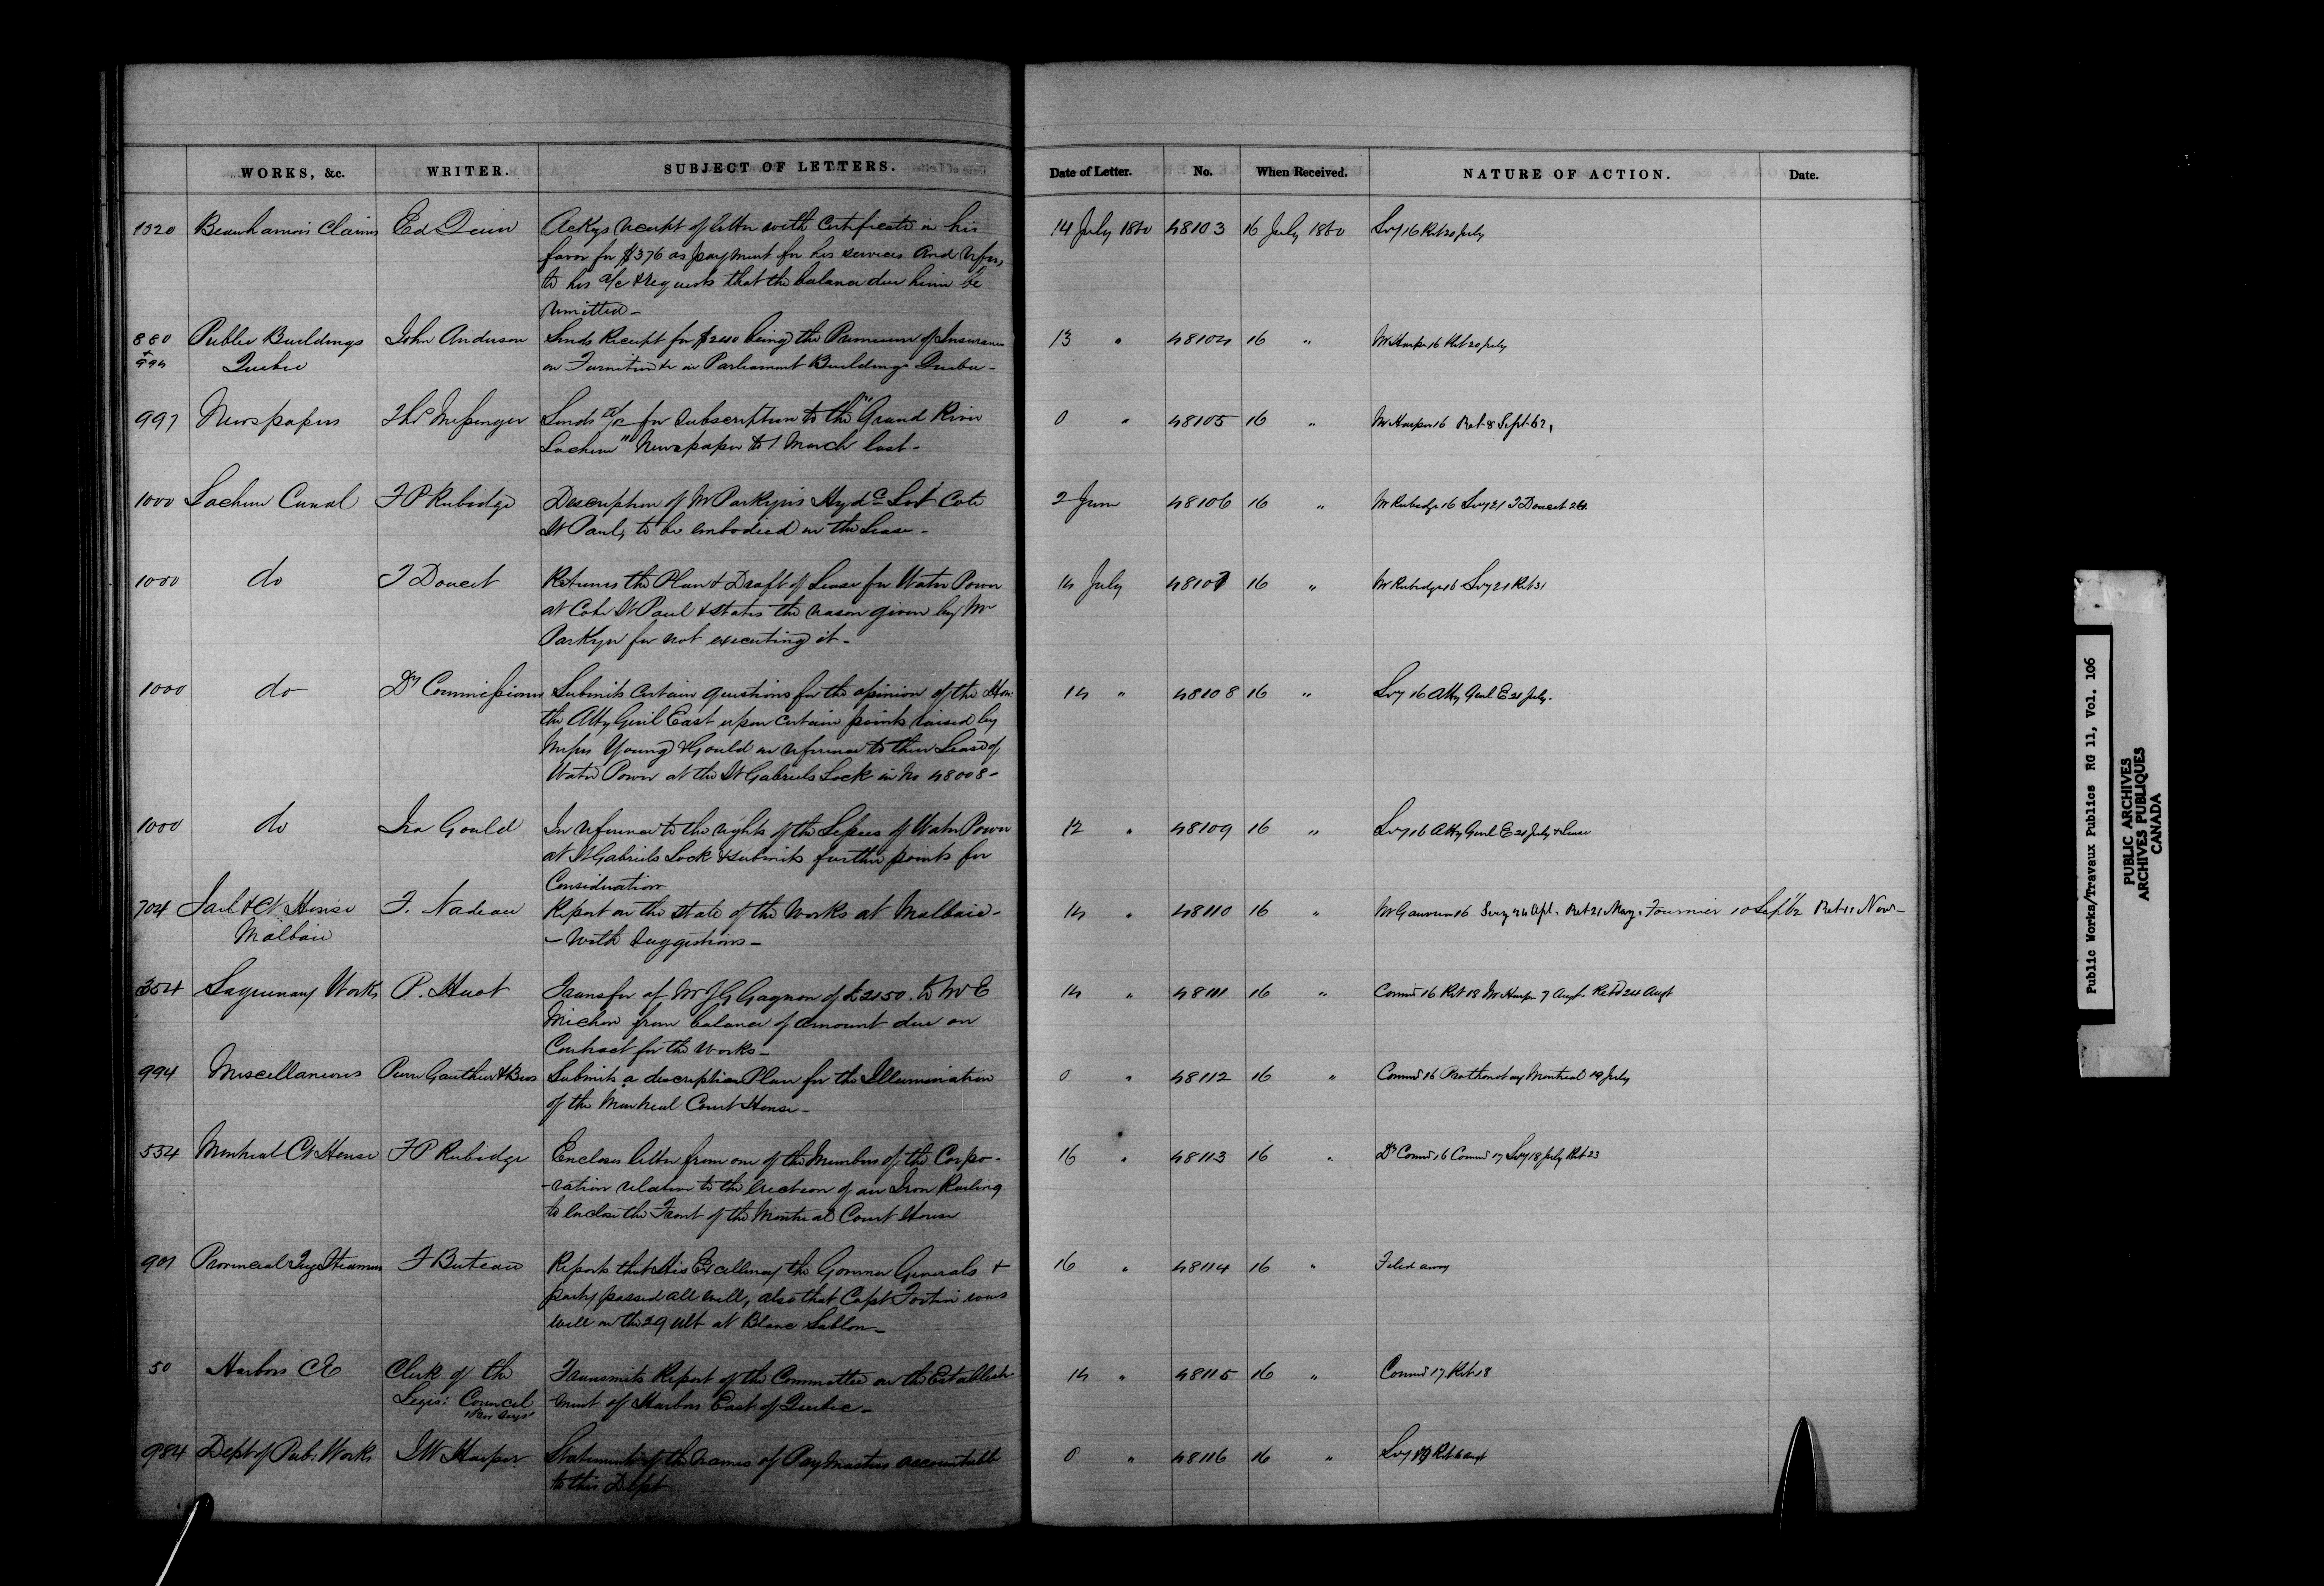 WORKS, &c. WRITER. SUBJECT OF LETTERS. Date of Letter. No. When Received. NATURE OF ACTION. Date.
1320 Beauharnois Claims Ed Quinn Ackgs receipt of letter with Certificate in his 14 July 1860 48103 16 July 1860 Secy 16 Ret 20 July
favor for $376 as payment for his services and refers
to his a/c & requests that the balance due him be
remitted -
880 Public Buildings John Anderson Sends Receipt for $240 being the Premium of Insurance 13 " 48104 16 " Mr Harper 16 Ret 20 July
+ Quebec on Furniture &c in Parliament Buildings Quebec -
994
997 Newspapers Thos Messenger Sends a/c for subscription to the "Grand River 0 " 48105 16 " Mr Harper 16 Ret 8 Sept 62,
Sachem" Newspaper to 1 March last -
1000 Lachine Canal F P Rubidge Description of Mr Parkyn's Hydc Lot Cote 2 June 48106 16 " Mr Rubidge 16 Secy 21 T Doucet 24
St Paul, to be embodied in the Lease -
1000 do T Doucet Returns the Plan & Draft of Lease for Water Power 14 July 48107 16 " Mr Rubidge 16 Secy 21 Ret 31
at Cote St Paul & states the reason given by Mr
Parkyn for not executing it -
1000 do Dy Commissioner Submits certain questions for the opinion of the Hon: 14 " 48108 16 " Secy 16 Atty Genl E 21 July -
the Atty Genl East upon certain points raised by
Messrs Young & Gould in reference to their Lease of
Water Power at the St Gabriels Lock in No 48008 -
1000 do Ira Gould In reference to the rights of the Lessees of Water Power 12 " 48109 16 " Secy 16 Atty Genl E 21 July & Lease
at St Gabriels Lock & submits further points for
Consideration
704 Jail & Ct House F. Nadeau Report on the state of the Works at Malbaie - 14 " 48110 16 " Mr Gauvreau 16 Secy 24 Apl. Ret 21 May. Fournier 10 Sept 62 Ret 11 Nov -
Malbaie - With Suggestions -
354 Saguenay Works P. Huot Transfer of Mr J G Gagnon of £2150. to Mr E 14 " 48111 16 " Commr 16 Ret 18 Mr Harper 7 Augt Retd 24 Augt
Michon from balance of amount due on
Contract for the Works -
994 Miscellaneous Pierre Gauthier & Bros Submits a description Plan for the Illumination 0 " 48112 16 " Commr 16 Prothonotary Montreal 19 July
of the Montreal Court House -
534 Montreal Ct House F P Rubidge Encloses letter from one of the Members of the Corpo- 16 " 48113 16 " Dy Commr 16 Commr 17 Secy 18 July Ret 23
-ration relative to the erection of an Iron Railing
to enclose the Front of the Montreal Court House
901 Provincial Tug Steamers F Buteau Reports that His Excellency the Governor Generals & 16 " 48114 16 " Filed away
party passed all well, also that Capt Fortin was
well on the 29 ult at Blanc Sablon -
50 Harbors CE Clerk of the Transmits Report of the Committee on the Establish 14 " 48115 16 " Commr 17 Ret 18
Legis: Council -ment of Harbors East of Quebec -
984 Dept of Pub: Works J W Harper Statement of the names of Pay Masters accountable 0 " 48116 16 " Secy Ret 6 Augt
to this Dept
Public Works/Travaux Publics RG 11, Vol. 106
PUBLIC ARCHIVES
ARCHIVES PUBLIQUES
CANADA